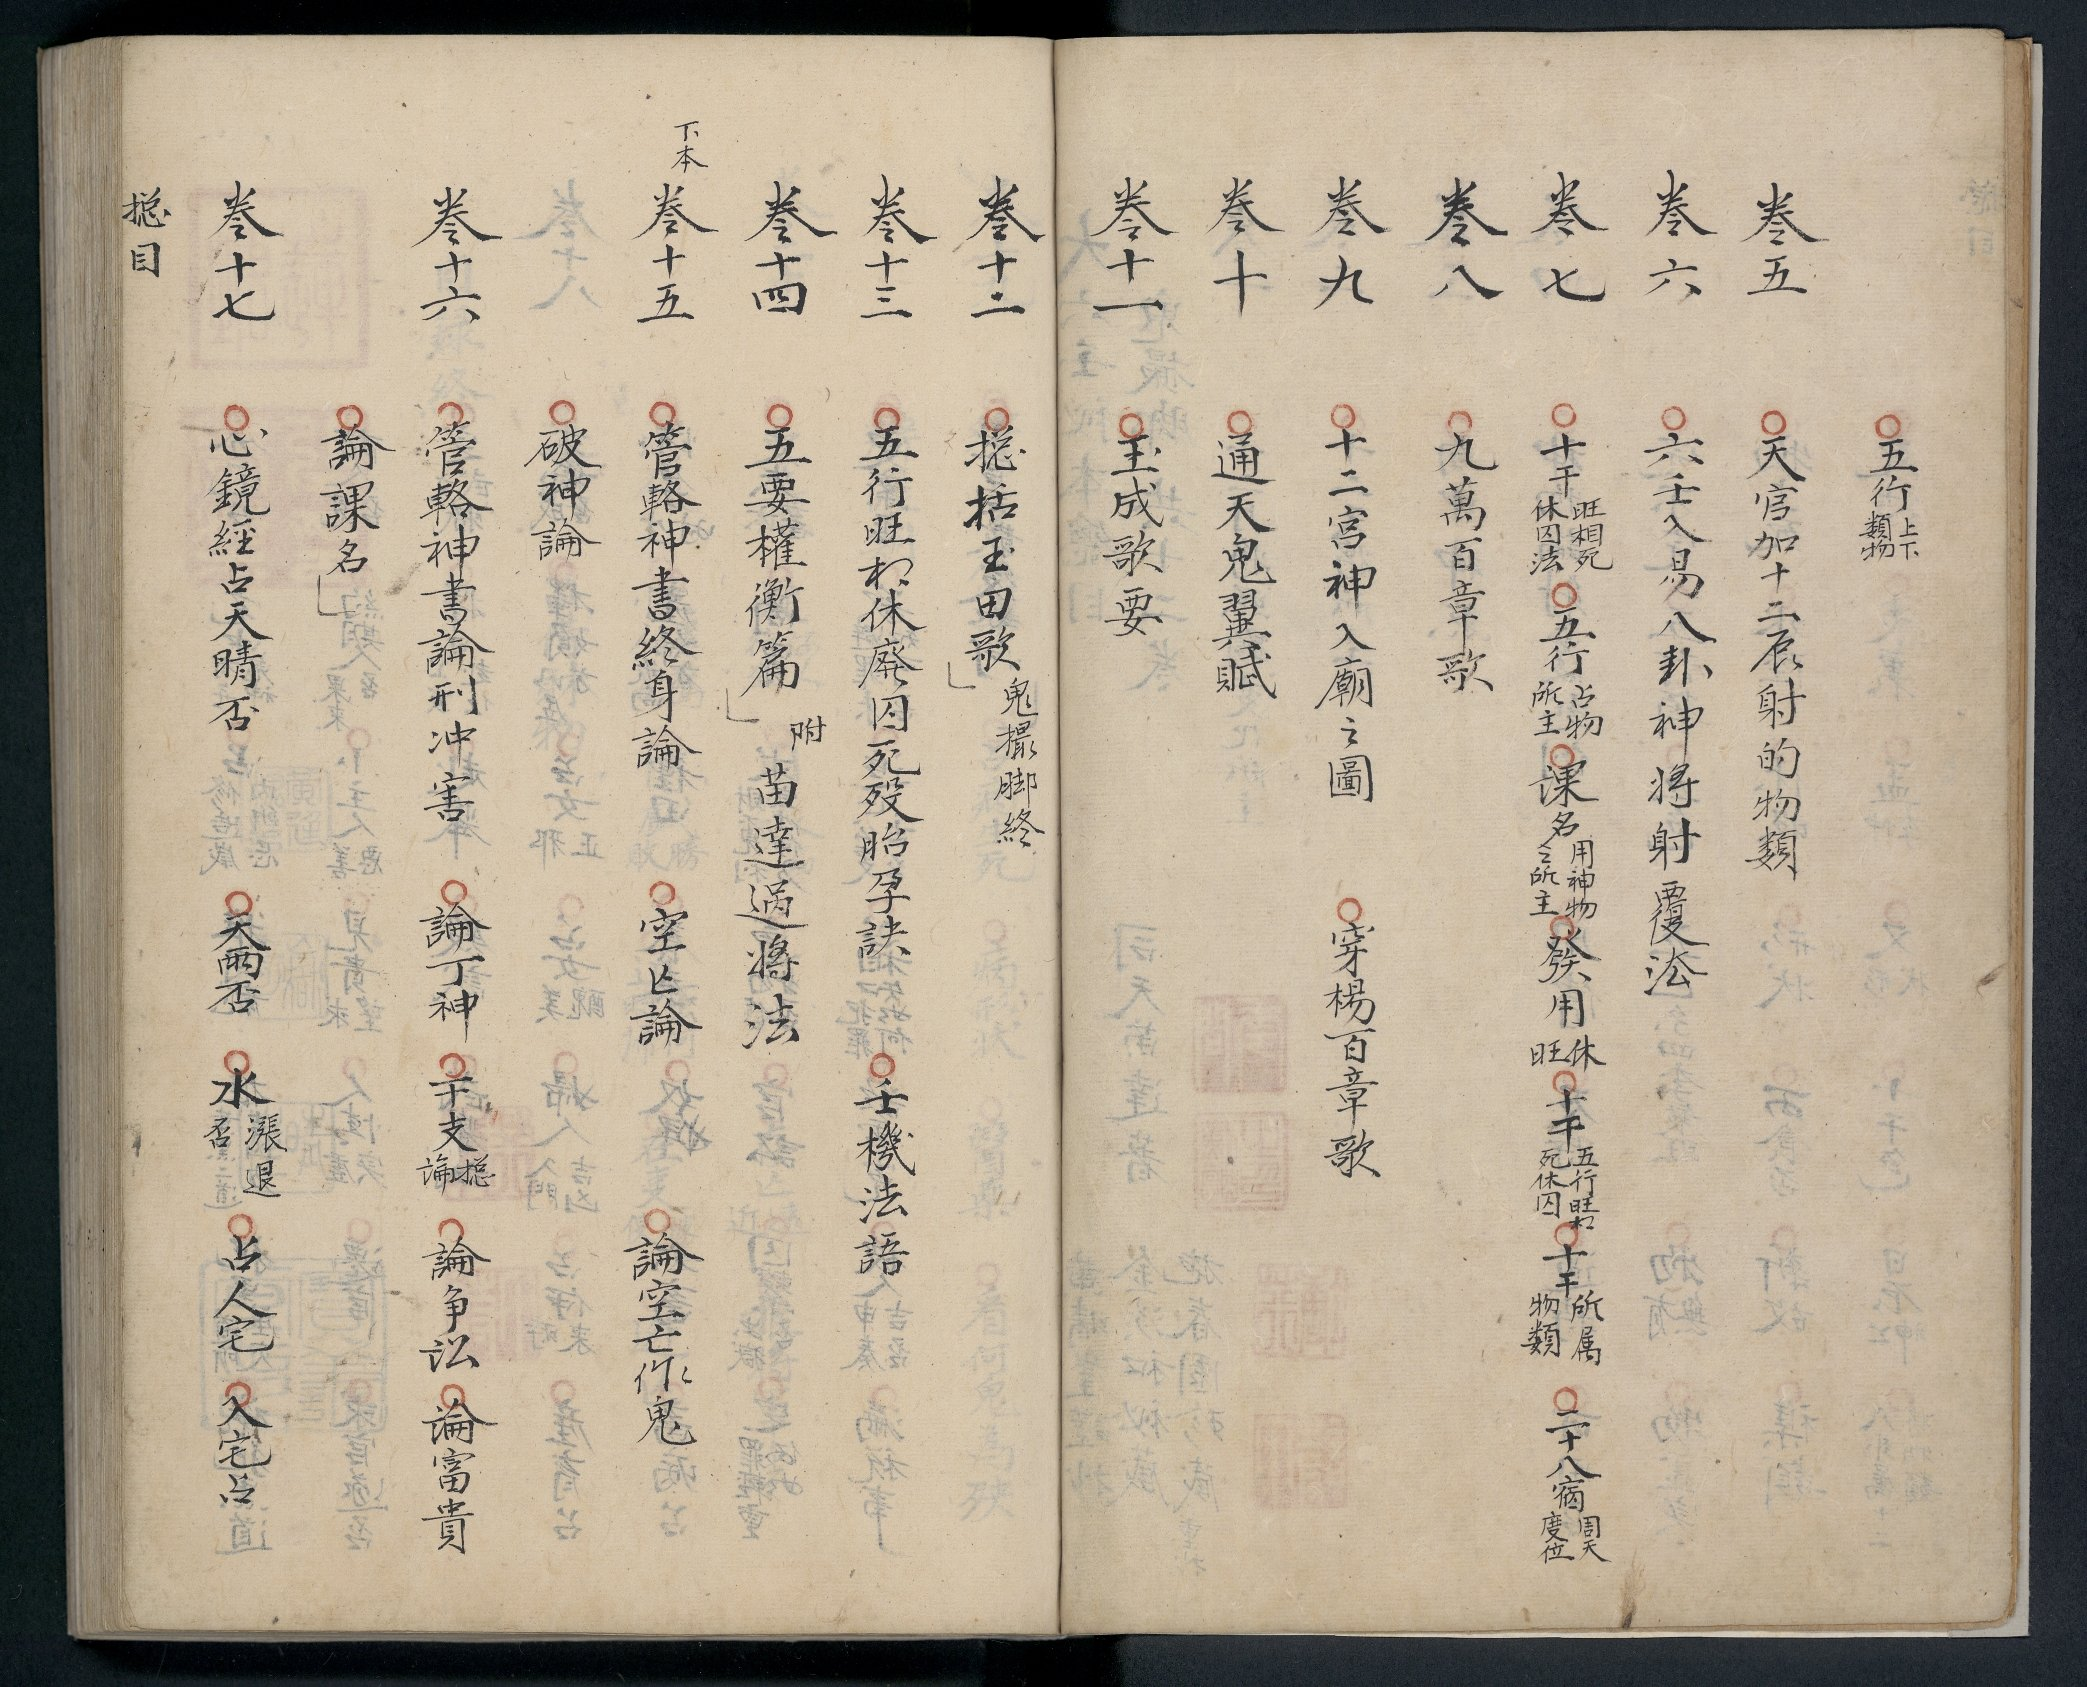 五行上下類物
卷五 天官加十二辰射的物類
卷六 六壬入易八卦神將射覆法
卷七 十干旺相死休囚法 五行占物所主 課名用神物之所主 發用休旺 十干五行旺相死休囚 十干所属物類 二十八宿周天度位
卷八 九萬百章歌
卷九 十二宮神入廟之圖 穿楊百章歌
卷十 通天鬼翼賦
卷十一 玉成歌要
卷十二 捴括玉田歌 鬼撮脚終
卷十三 五行旺相休廢囚死歿胎孕訣 壬機法語
卷十四 五要權衡篇 附 苗達過將法
下本
卷十五 管輅神書終身論 空亡論 論空亡作鬼
破神論
卷十六 管輅神書論刑冲害 論丁神 干支捴論 論爭訟 論富貴
論課名
卷十七 心鏡經占天晴否 天雨否 水漲退否 占人宅 入宅占
捴目